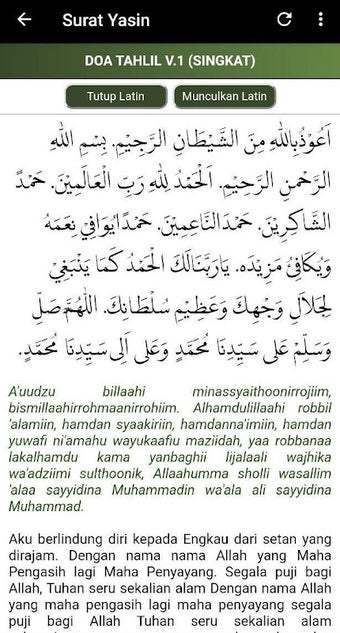 Surat Yasin
DOA TAHLIL V.1 (SINGKAT)
Tutup Latin
Munculkan Latin
اَعُوْذُبِاللهِ مِنَ الشَّيْطَانِ الرَّجِيْمِ. بِسْمِ اللهِ
الرَّحْمنِ الرَّحِيْمِ. اَلْحَمْدُ لِلهِ رَبِّ الْعَالَمِيْنَ. حَمْدً
الشَّاكِرِيْنَ. حَمْدَالنَّاعِمِيْنَ. حَمْدًايُوَافِيْ نِعَمَهُ
وَيُكَافِئُ مَزِيْدَه. يَارَبَّنَالَكَ الْحَمْدُ كَمَا يَنْبَغِيْ
لِجَلاَلِ وَجْهِكَ وَعَظِيْمِ سُلْطَانِكَ. اَللّهُمَّ صَلِّ
وَسَلِّمْ عَلى سَيِّدِنَا مُحَمَّدٍ وَعَلى اَلِى سَيِّدِنَا مُحَمَّدٍ.
A'uudzu billaahi minassyaithoonirrojiim,
bismillaahirrohmaanirrohiim. Alhamdulillaahi robbil
'alamiin, hamdan syaakiriin, hamdanna'imiin, hamdan
yuwafi ni'amahu wayukaafiu maziidah, yaa robbanaa
lakalhamdu kama yanbaghii lijalaali wajhika
wa'adziimi sulthoonik, Allaahumma sholli wasallim
'alaa sayyidina Muhammadin wa'ala ali sayyidina
Muhammad.
Aku berlindung diri kepada Engkau dari setan yang
dirajam. Dengan nama nama Allah yang Maha
Pengasih lagi Maha Penyayang. Segala puji bagi
Allah, Tuhan seru sekalian alam Dengan nama Allah
yang maha pengasih lagi maha penyayang segala
puji bagi Allah Tuhan seru sekalian alam